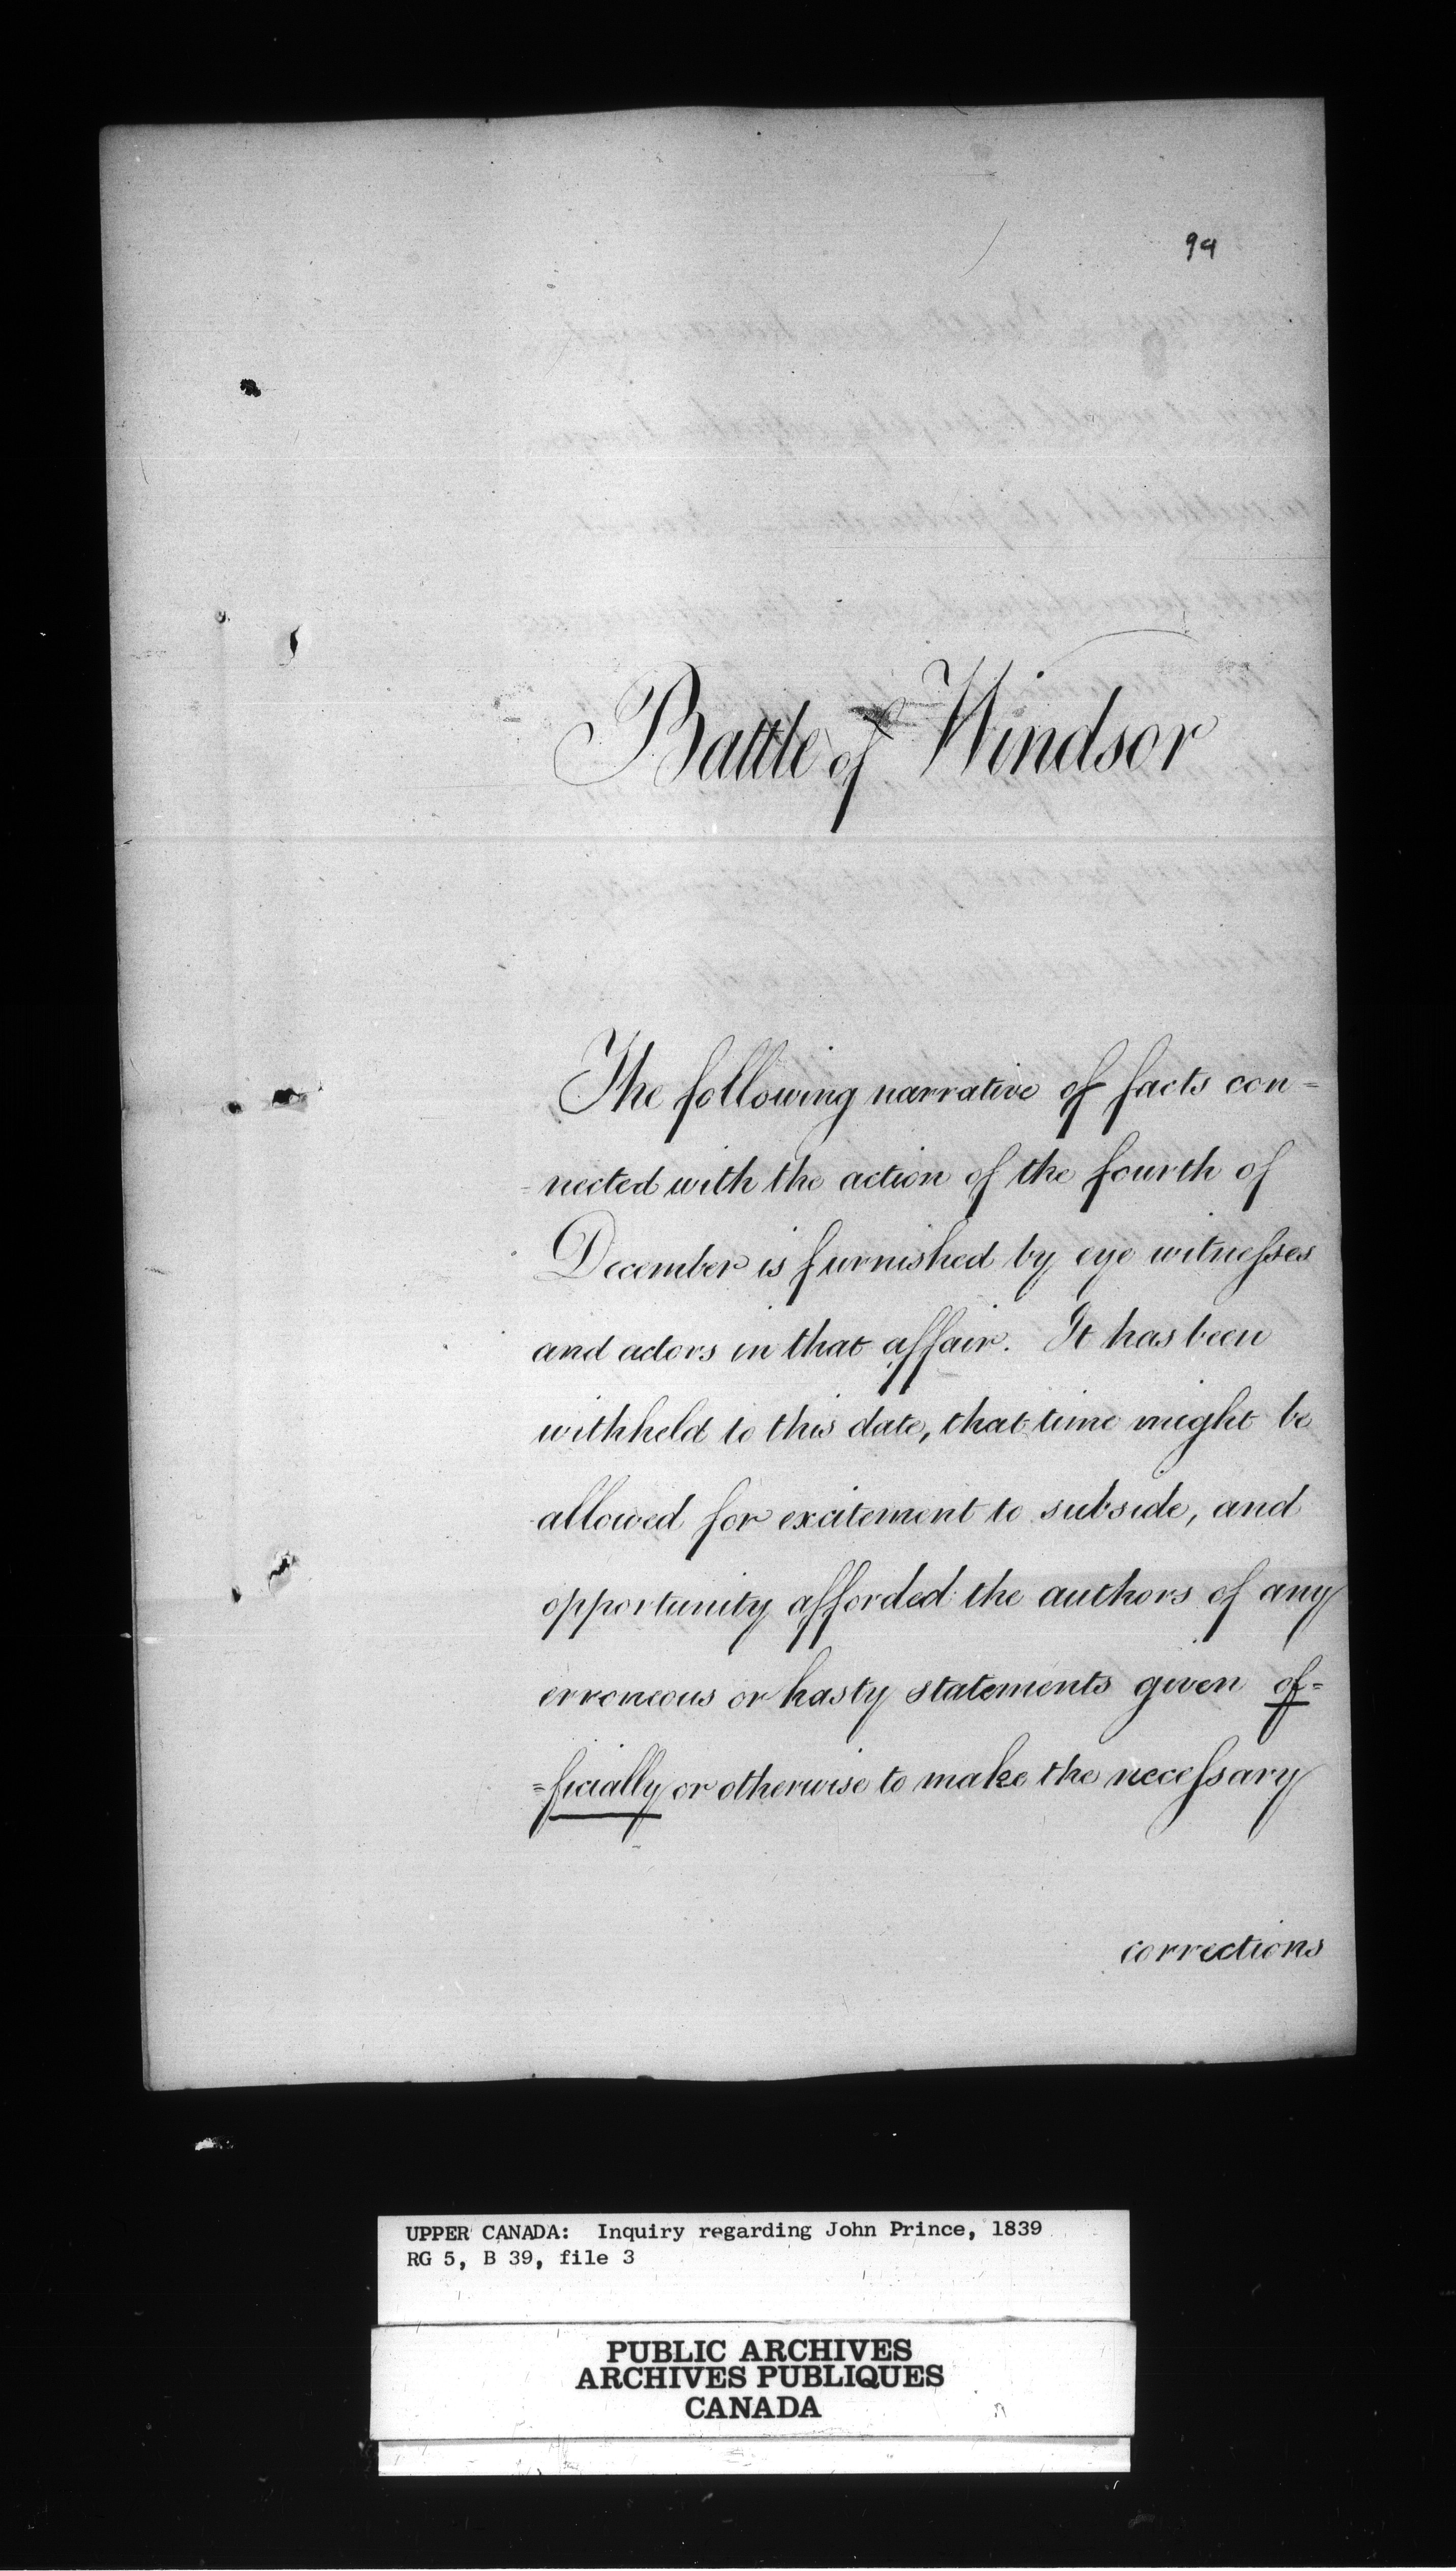 99
Battle of Windsor
The following narrative of facts con=
=nected with the action of the fourth of
December is furnished by eye witnesses
and actors in that affair. It has been
withheld to this date, that time might be
allowed for excitement to subside, and
opportunity afforded the authors of any
erroneous or hasty statements given of=
=ficially or otherwise to make the necessary
corrections
UPPER CANADA: Inquiry regarding John Prince, 1839
RG 5, B 39, file 3
PUBLIC ARCHIVES
ARCHIVES PUBLIQUES
CANADA